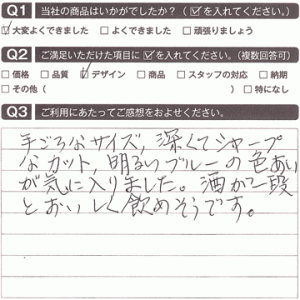 Q1 当社の商品はいかがでしたか？（☑を入れてください。）
☑大変よくできました □よくできました □頑張りましょう
Q2 ご満足いただけた項目に☑を入れてください。（複数回答可）
□価格 □品質 ☑デザイン □商品 □スタッフの対応 □納期
□その他（ ） □特になし
Q3 ご利用にあたってご感想をおよせください。
手ごろなサイズ,深くてシャープ
なカット,明るいブルーの色あい
が気に入りました。酒が一段
とおいしく飲めそうです。